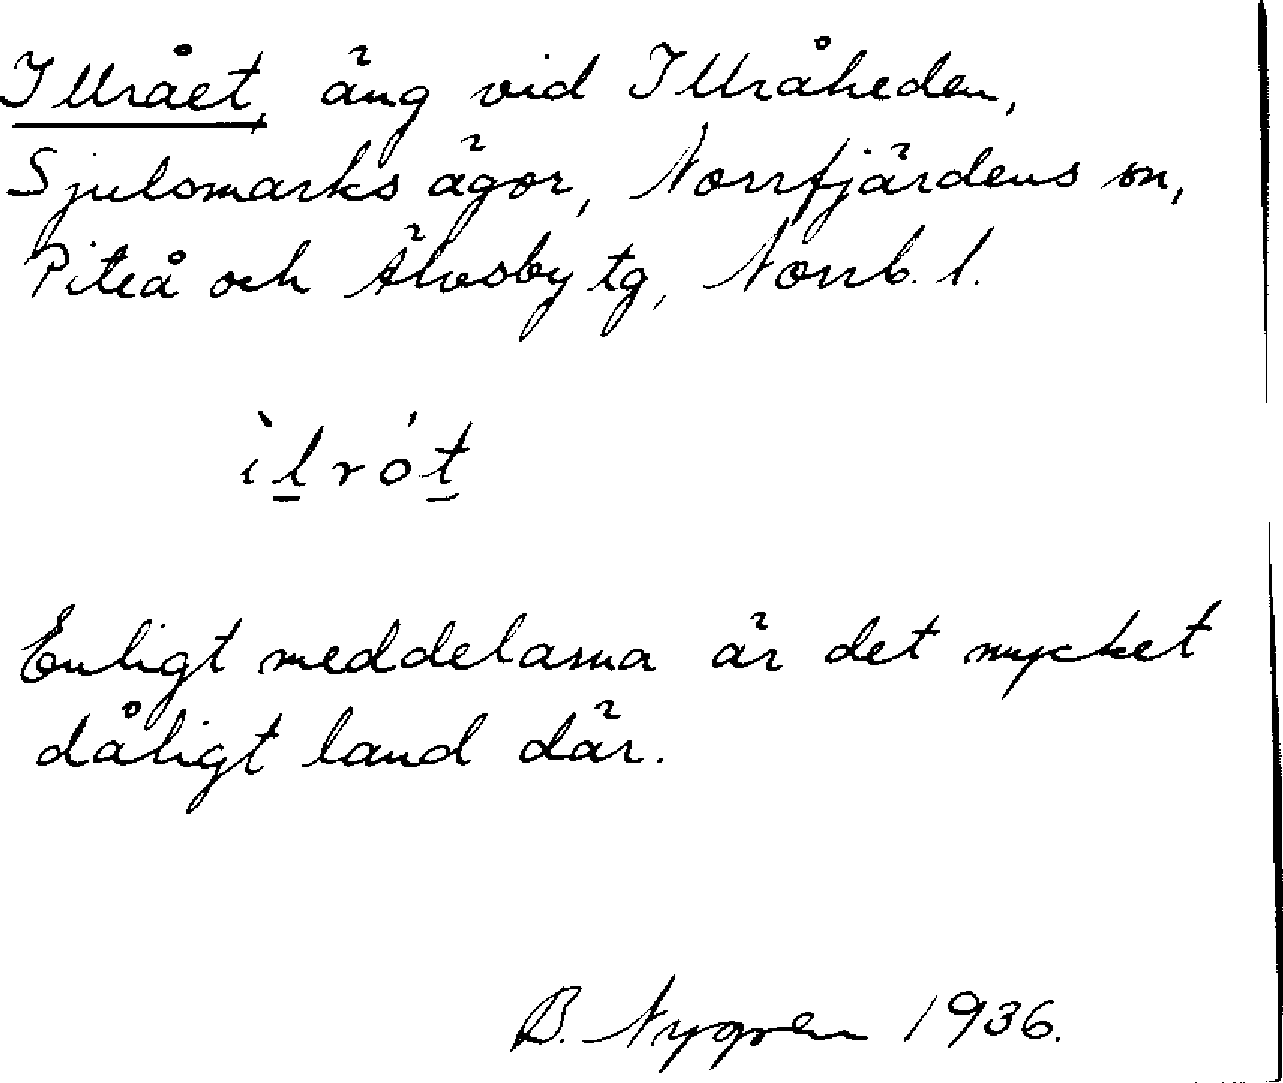 Illrået, äng vid Illråheden,
Sjulsmarks ägor, Norrfjärdens sn,
Piteå och Älvsby tg, Norrb. l.
ìl̲rót̲
Enligt meddelarna är det mycket
dåligt land där.
B. Nygren 1936.